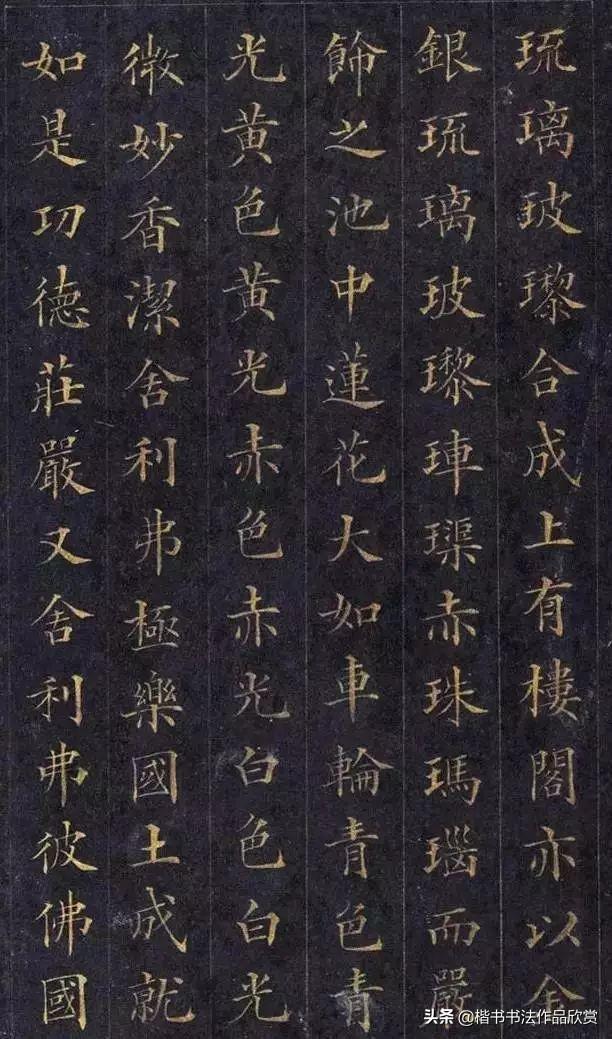 琉璃玻瓈合成上有樓閣亦以金
銀琉璃玻瓈硨磲赤珠瑪瑙而嚴
飾之池中蓮花大如車輪青色青
光黃色黃光赤色赤光白色白光
微妙香潔舍利弗極樂國土成就
如是功德莊嚴又舍利弗彼佛國
头条 @楷书书法作品欣赏